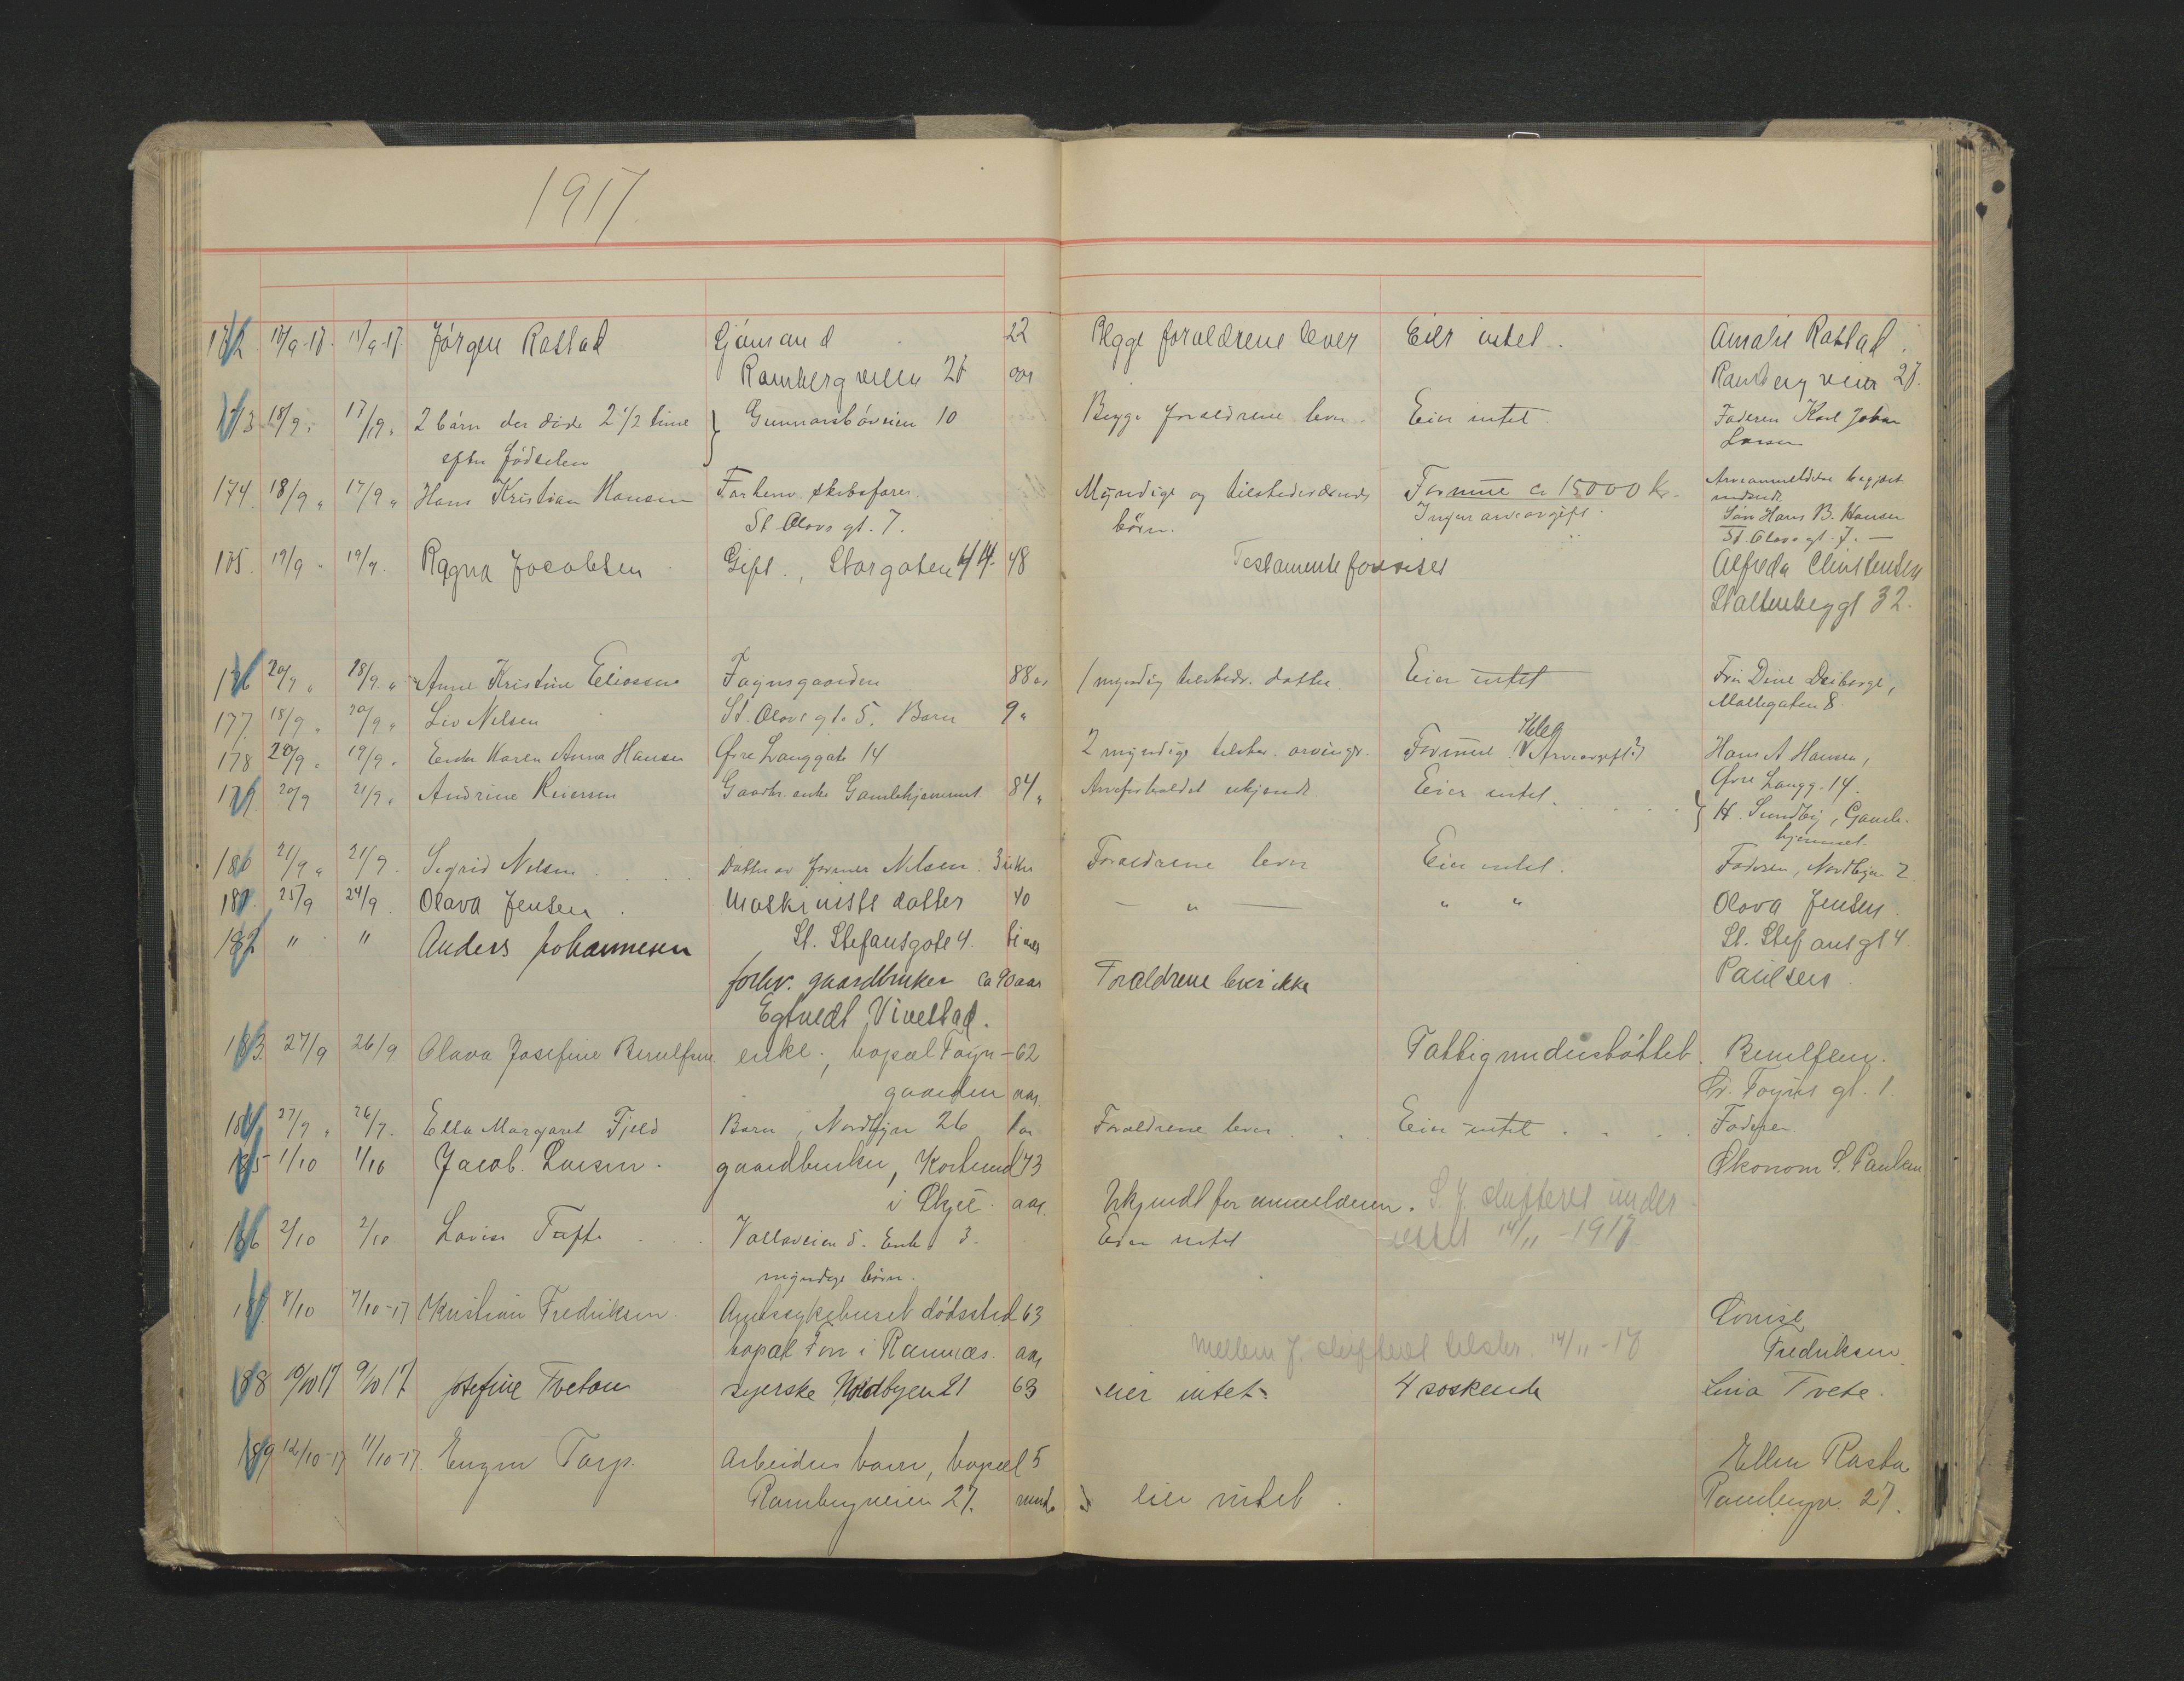 1917.
172 Jørgen Rastad Sjømand 22 Begge forældrene lever Eier intet. Amalie Rastad
Rambergveien 27 aar Rambergveien 27.
173 18/9 17/9 2 børn der døde 2 1/2 time Gunnarsbøveien 10 Begge forældrene lever Eier intet Faderen Karl Johan
efter fødselen Larsen
174. 18/9 " 17/9 " Hans Kristian Hansen Forhenv. skibsfører. Myndige og tilstedeværende Formue ca 15000 kr.
St. Olavs gt. 7. børn. Ingen arveavgift. Søn Hans B. Hansen
St. Olavs gt. 7.
175. 19/9 19/9. Ragna Jacobsen Gift., Storgaten 44. 48 Testamente forvises Alfreda Christensen
Stoltenberggt 32.
176 20/9 " 18/9 " Anne Kristine Eliassen Foynsgaarden 88 aar 1 myndig tilstedev. datter. Eier intet Fru Dine
Møllegaten 8.
177. 18/9 " 20/9 " Liv Nilsen St. Olavs gt. 5. Barn 9 "
178 20/9 " 19/9 " Enke Karen Anna Hansen Øvre Langgate 14 2 myndige tilstev. arvinger. Formue (Arveavgift?) Hans A Hansen,
Øvre Langg. 14.
179. 20/9 21/9 " Andrine Reiersen Gaardbr. enke Gamlehjemmet 84 " Arveforholdet ukjendt. Eier intet. H. Sundby, Gamle-
hjemmet
180 21/9 " 21/9. Sigrid Nilsen Datter av Nilsen. 3 uker Forældrene lever Eier intet. Faderen, Nordbyen 2
181. 25/9 24/9. Olava Jensen Maskinists datter 40 — " — " " Olava Jensen
182 " " Anders Johannesen St. Stefansgate 4. timer St. Stefansgt 4.
forhv. gaardbruker ca 90 aar Forældrene lever ikke Paulsen.
Egtvedt, Vivestad.
183. 27/9 26/9 Olava Josefine Berulfsen enke., bopæl Foyn- 62 Fattigunderstøttet. Berulfsen.
gaarden aar. Sv. Foyns gt. 1.
184. 27/9 " 26/9. Ella Margaret Fjeld Barn, Nordbyen 26 1 aar Forældrene lever Eier intet Faderen
185 1/10 1/10 Jacob Larsen. gaardbruker, 73 Økonom S. Paulsen
i Skjee. aar. Ukjendt for anmelderen. S. J. skifteret under-
186 2/10 2/10 Lovise Tufte Valløveien 5. Enke 3. Eier intet rettet 14/11 - 1917.
myndige børn.
187. 8/10 7/10-17 Kristian Fredriksen Amtssykehuset dødssted 63 Lovise
bopæl Fon i Ramnæs. aar Mellem J. skifteret tilskr. 14/11 - 17 Fredriksen
188 10/10 17 9/10 17 Josefine Tvetan syerske Nordbyen 21 63 eier intet. 4 søskende Lina Tvete.
189 12/10-17 11/10-17 Torp. Arbeiders barn, bopæl 5 Ellen Rasta
Rambergveien 27. mndr. eier intet. Rambergv. 27.